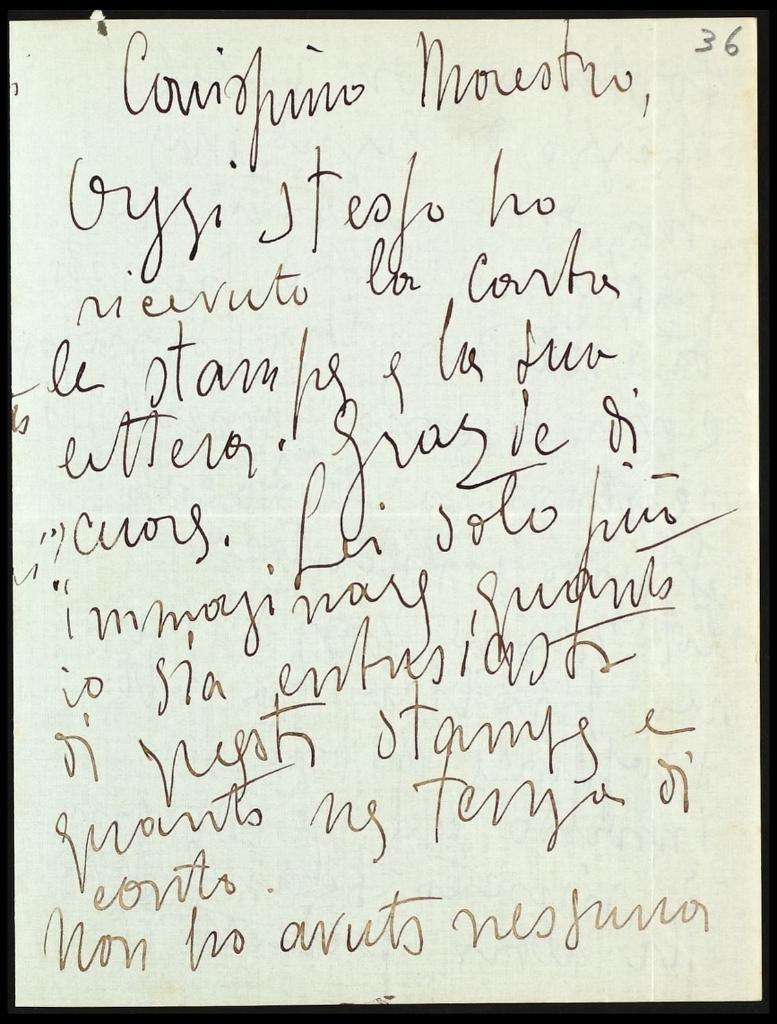 36
Carissimo Maestro,
Oggi stesso ho
ricevuto la carta
le stampe e la sua
lettera. Grazie di
cuore. Lei solo può
immaginare quanto
io sia entusiasta
di queste stampe e
quanto ne tenga di
conto.
Non ho avuto nessuna